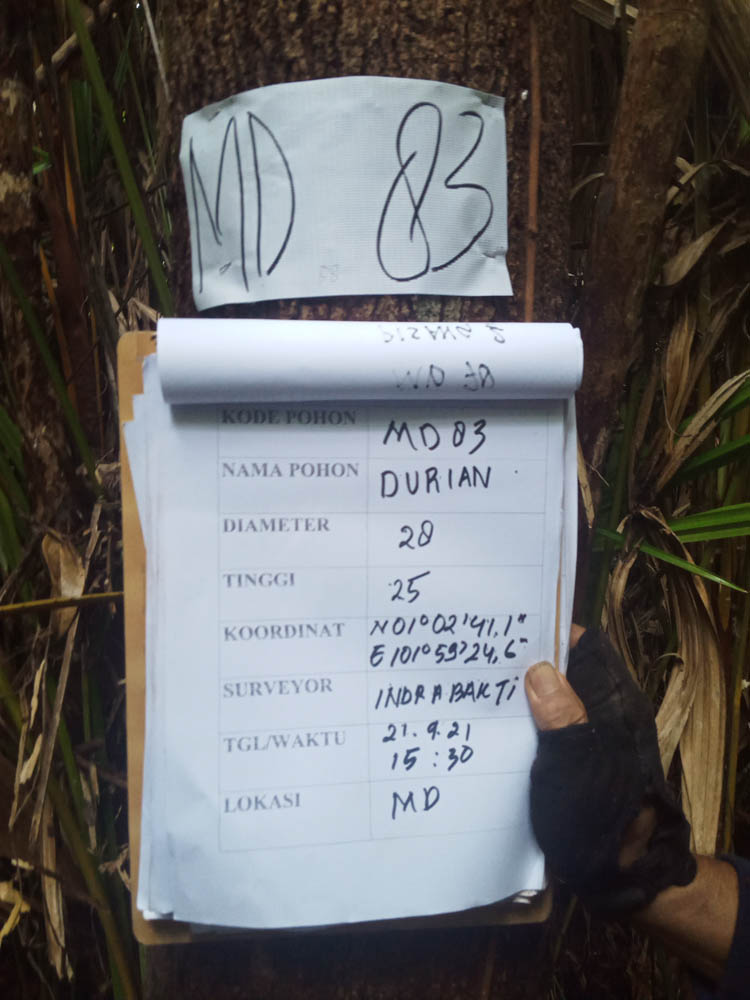 MD 83
KODE POHON MD 83
NAMA POHON DURIAN
DIAMETER 28
TINGGI 25
KOORDINAT N 01° 02' 41,1"
E 101° 59' 24,6"
SURVEYOR INDRA BAKTI
TGL/WAKTU 21.9.21
15:30
LOKASI MD